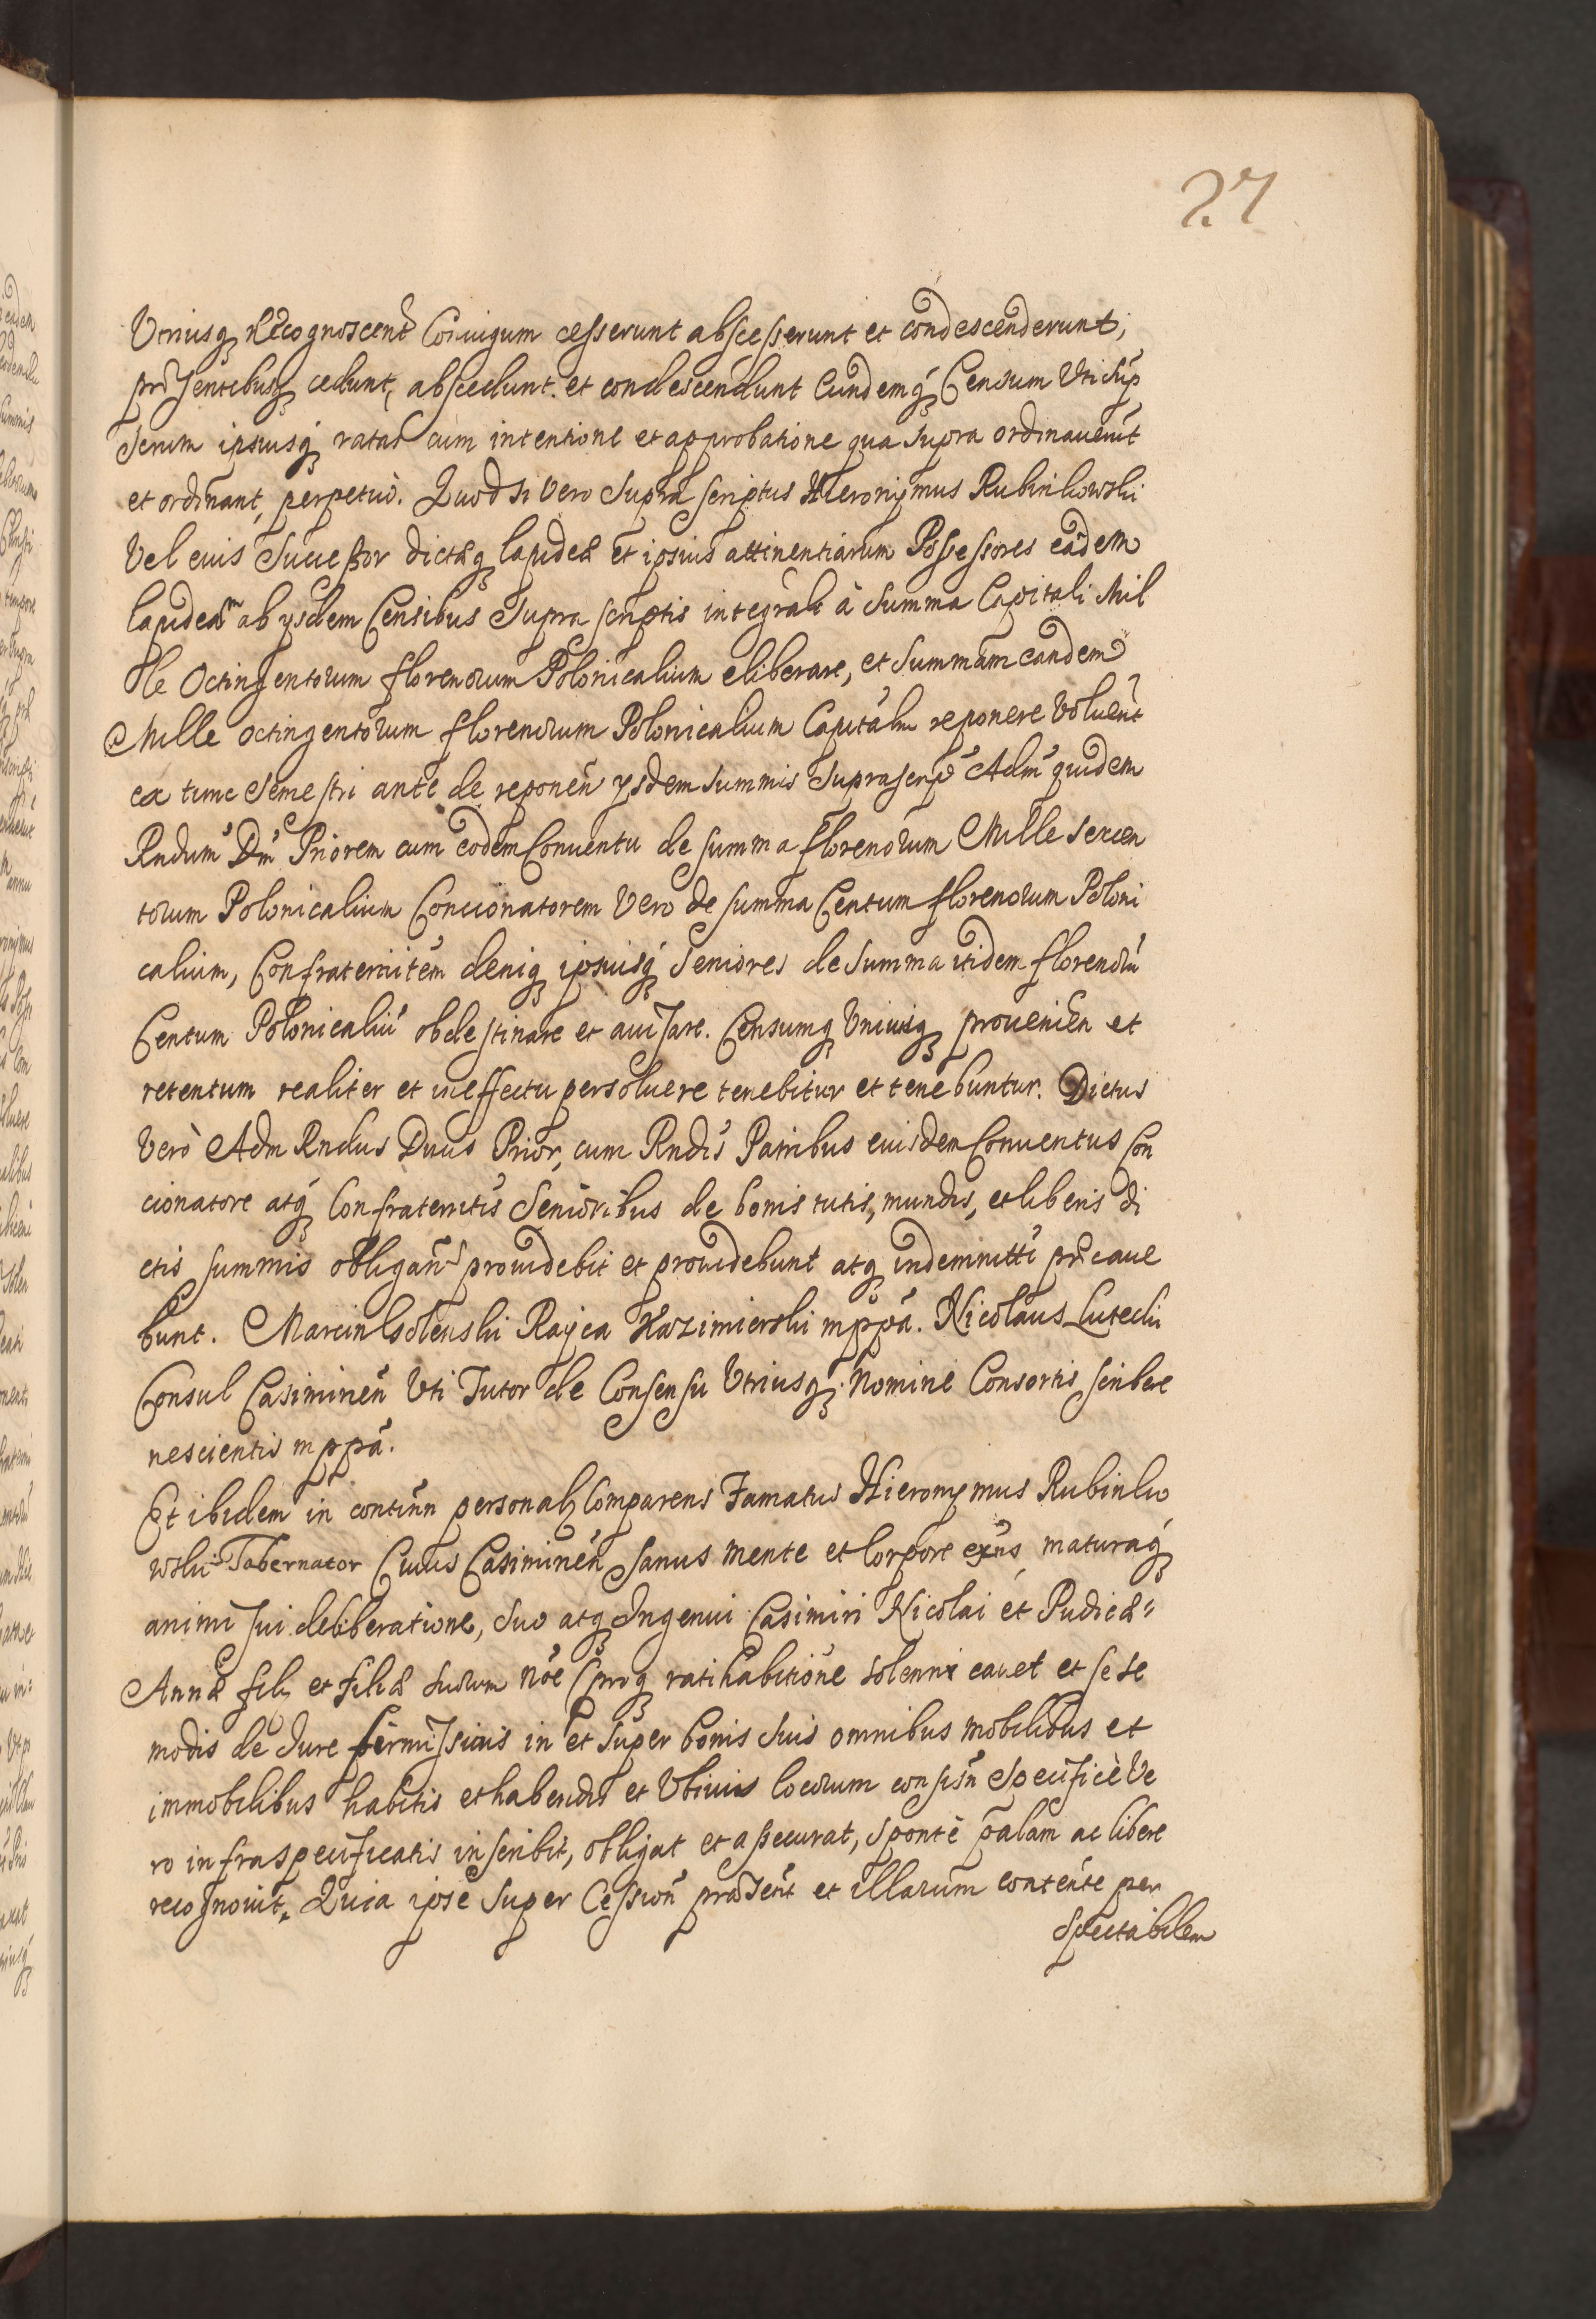 27
Vtriusq₃ Recognoscent Coniugum cesserunt abscesserunt et condescenderunt;
prӕsentibusq₃ cedunt, abscedunt et condescendunt Eundemq₃ Censum Vti sup
serum ipsiusq₃ ratas cum intentione et approbatione qua supra ordinauerut
et ordinant, perpetuò. Quod si Vero Supra scriptus Hieronijmus Rubinkowski
Vel eius Successor dictӕq₃ lapideӕ et ipsius attinentiarum Possessores eadem
lapideam ab ysdem Censibus Supra scriptis integralr à Summa Capitali Mil
lle Octingentorum florenorum Polonicalium eliberare, et Summam eandem
Mille octingentorum florenorum Polonicalium Capitalem reponere Voluerit
ex tunc Semestri ante de reponen ysdem summis Suprascrip Adm quidem
Rndum Dm Priorem cum eodem Conuentu de summa florenorum Mille Sexcen
torum Polonicalium Concionatorem Vero de summa Centum florenorum Poloni
calium, Confraternitem deniq₃ ipsiusq₃ Seniores de Summa itidem florenorū
Centum Polonicaliū obdestinare et auisare. Censumq₃ Vniusq₃ prouenien et
retentum realiter et in effectu persoluere tenebitur et tenebuntur. Dictus
Verò Adm Rndus Dnus Prior, cum Rndis Patribus eiusdem Conuentus Con
cionatore atq₃ Confraternitis Senioribus de bonis tutis, mundis, et liberis di
ctis summis obligan prouidebit et prouidebunt atq₃ indemnitti prӕcaue
bunt. Marcin Isolenski Rayca Kazimierski mppa. Nicolaus Lutecki
Consul Casimirien Vti Tutor de Consensu Vtriusq₃ Nomine Consortis scribere
nescientis mppa.
Et ibidem in continn personalr Comparens Famatus Hieronymus Rubinko
wski Tabernator Ciuis Casimirien Sanus mente et Corpore exns, maturaq₃
animi sui deliberatione, suo atq₃ Ingenui Casimiri Nicolai et Pudicӕ
Annӕ filij et filiӕ suorum noe (proq₃ ratihabitione solenni cauet et sese
modis de Jure permissiuis in et super bonis suis omnibus mobilibus et
immobilibus habitis et habendis et Vbiuis locorum consisn Specificè Ve
ro infraspecificatis inscribit, obligat et assecurat, sponte palam ac libere
recognouit, Quia ipse Super Cession prӕsent et illarum contente per
Spectabilem